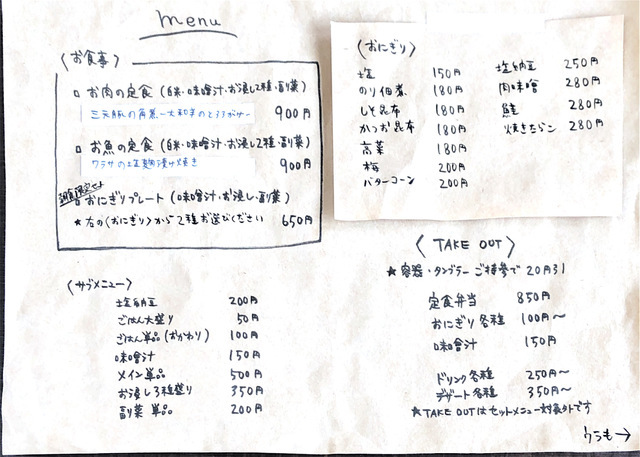 menu
〈お食事〉
お肉の定食 (白米・味噌汁・お浸し2種・副菜)
三元豚の角煮
900円
お魚の定食 (白米・味噌汁・お浸し2種・副菜)
ワラサの塩麹漬け焼き
900円
おにぎりプレート (味噌汁・お浸し・副菜)
★ 右の〈おにぎり〉から2種お選びください 650円
〈サブメニュー〉
塩納豆 200円
ごはん大盛り 50円
ごはん単品(おかわり) 100円
味噌汁 150円
メイン単品 500円
お浸し3種盛り 350円
副菜単品 200円
〈おにぎり〉
塩 150円
のり佃煮 180円
しそ昆布 180円
かつお昆布 180円
高菜 180円
梅 200円
バターコーン 200円
塩納豆 250円
肉味噌 280円
鮭 280円
焼きたらこ 280円
〈TAKE OUT〉
★容器・タンブラーご持参で 20円引
定食弁当 850円
おにぎり各種 100円〜
味噌汁 150円
ドリンク各種 250円〜
デザート各種 350円〜
★TAKE OUTはセットメニュー対象外です
ウラも→